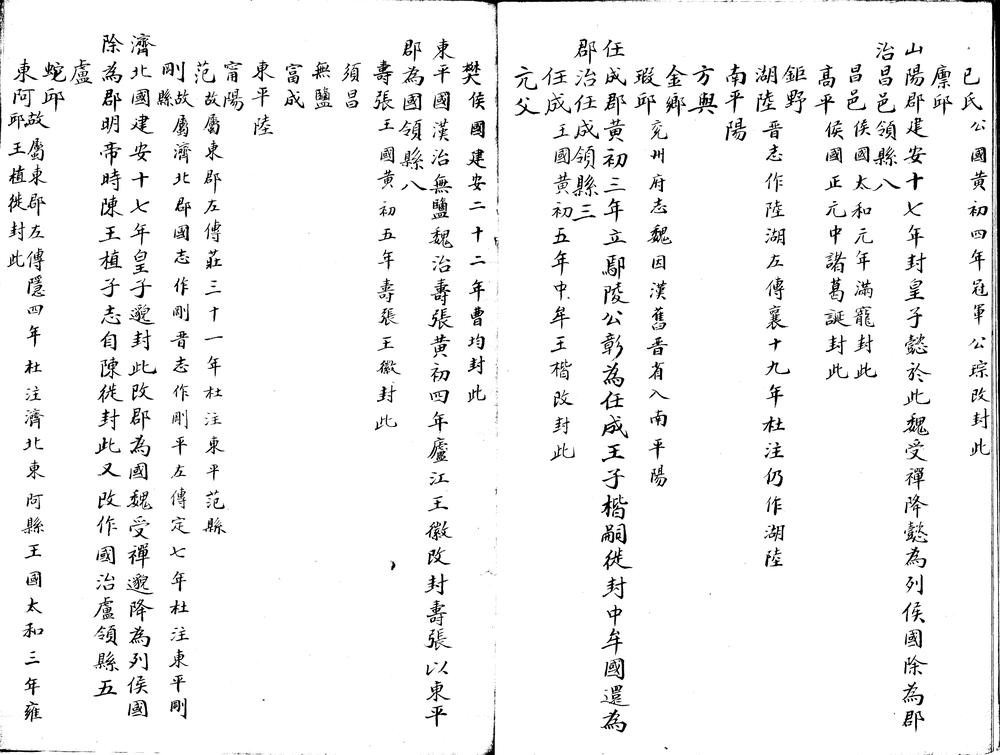 已氏公國黃初四年冠軍公琮改封此
廩邱
山陽郡建安十七年封皇子懿於此魏受禪降懿為列侯國除為郡
治昌邑領縣八
昌邑侯國太和元年滿寵封此
高平侯國正元中諸葛誕封此
鉅野
湖陸晋志作陸湖左傳襄十九年杜注仍作湖陸
南平陽
方與
金鄉
瑕邱兗州府志魏因漢舊晋省入南平陽
任成郡黃初三年立鄢陵公彰為任成王子楷嗣徙封中牟國還為
郡治任成領縣三
任成王國黃初五年中牟王楷改封此
亢父
樊侯國建安二十二年曹均封此
東平國漢治無鹽魏治壽張黃初四年廬江王徽改封壽張以東平
郡為國領縣八
壽張王國黃初五年壽張王徽封此
須昌
無鹽
富成
東平陸
甯陽
范故屬東郡左傳莊三十一年杜注東平范縣
剛故屬濟北郡國志作剛晋志作剛平左傳定七年杜注東平剛
縣
濟北國建安十七年皇子邈封此改郡為國魏受禪邈降為列侯國
除為郡明帝時陳王植子志自陳徙封此又改作國治盧領縣五
盧
蛇邱
東阿故屬東郡左傳隱四年杜注濟北東阿縣王國太和三年雍
邱王植徙封此